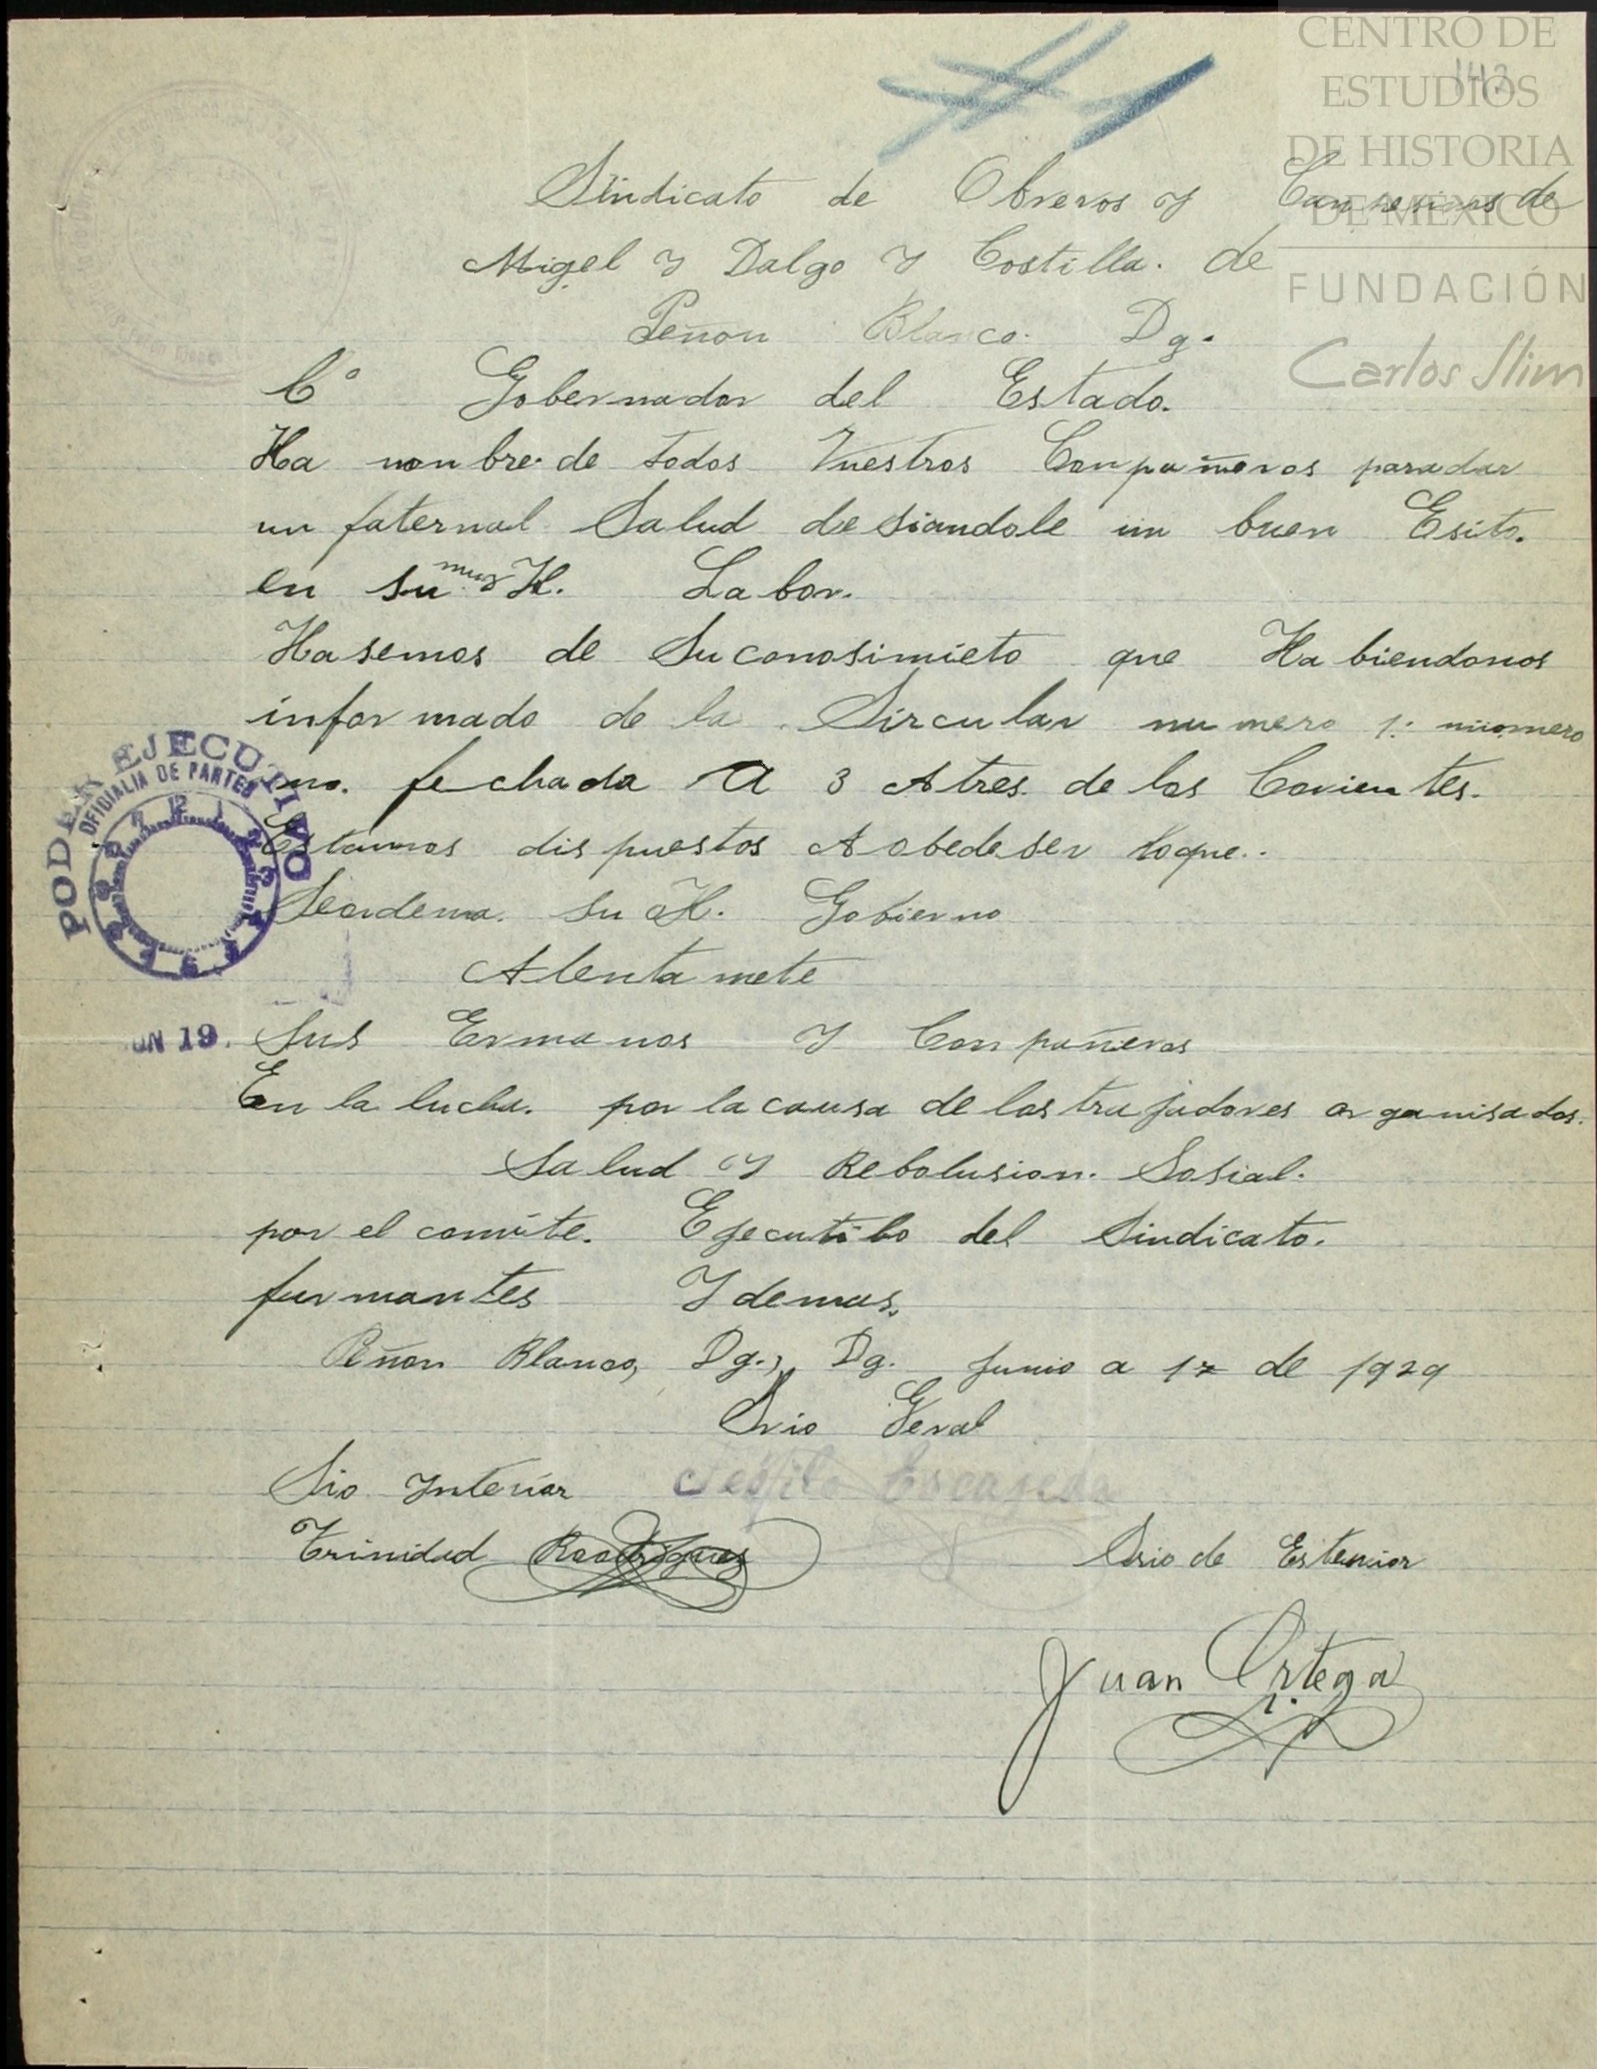 CENTRO DE
ESTUDIOS
DE HISTORIA
DE MÉXICO
FUNDACIÓN
Carlos Slim
142
Sindicato de Obreros y Canpesinos de
Migel y Dalgo y Costilla. de
Peñon Blanco. Dg.
C° Gobernador del Estado.
Ha nonbre de todos Vuestros Conpañeros paradar
un faternal Salud desiandole un buen Esito.
en su muy H. Labor.
Hasemos de Suconosimieto que Habiendonos
informado de la Sircular numero 1: nuomero
uno. fechada A 3 Atres de los Corientes.
Estamos dispuestos A obedeser loque..
Seordena. su H. Gobierno
Atentamete
Sus Ermanos y Conpañeros
En la lucha. por la causa de los trajadores organisados.
Salud y Rebolusion. Sosial.
por el comite. Ejecutibo del Sindicato.
furmantes Y demas.
Peñon Blanco, Dg., Dg. Junio a 17 de 1929
Srio Geral
Sio Interior Teofilo Escageda
Trinidad Rodriguez
Srio de Esterior
Juan Ortega
PODER EJECUTIVO
OFICIALIA DE PARTES
JUN 19.